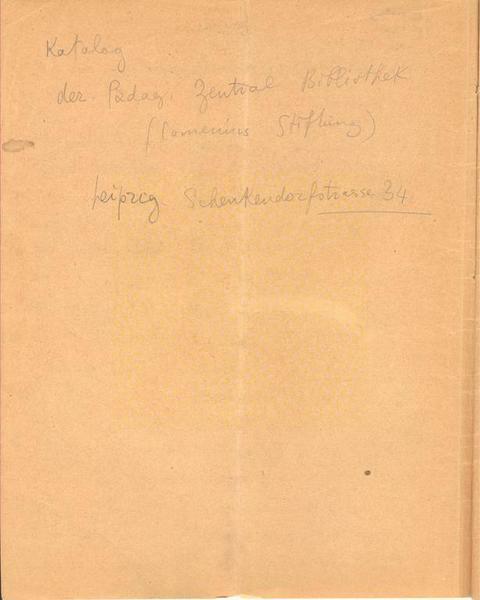 Katalog
der Pädag. Zentral Bibliothek
(Comenius Stiftung)
Leipzig Schenkendorfstrasse 34